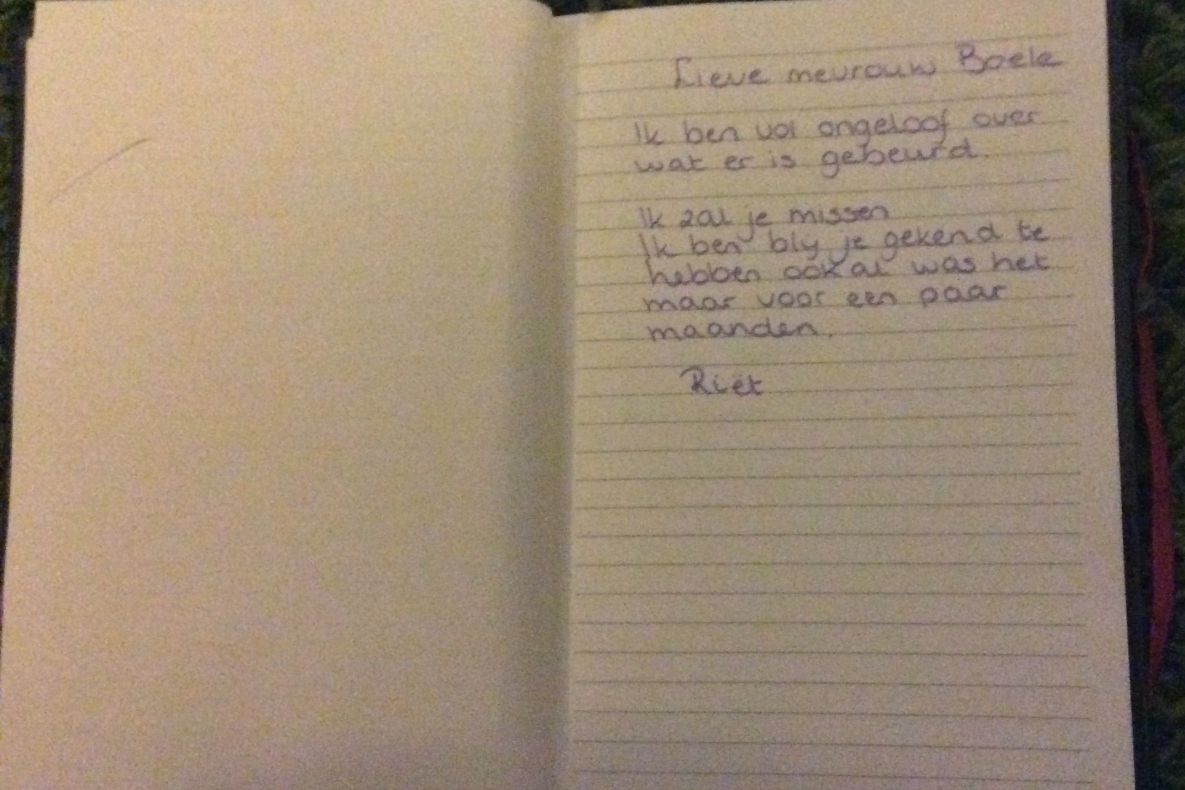 Lieve mevrouw Boele
Ik ben vol ongeloof over
wat er is gebeurd.
Ik zal je missen
Ik ben bly je gekend te
hebben ook al was het
maar voor een paar
maanden.
Riet